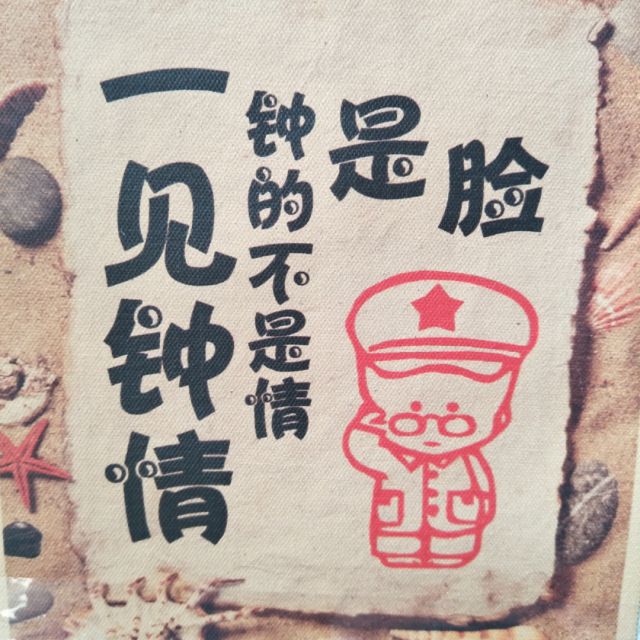 一见钟情
钟的不是情
是
脸